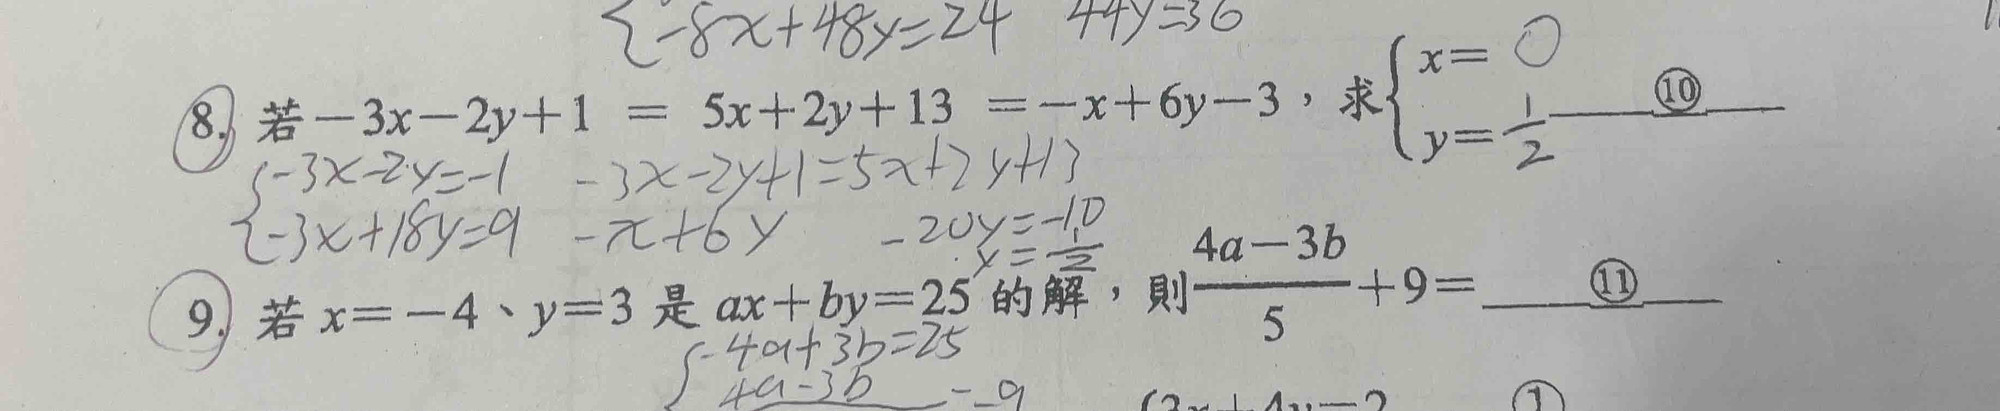 {-8x+48y=24 44y=36
8. 若-3x-2y+1 = 5x+2y+13 =-x+6y-3，求{x= 0 y= 1/2 ⑩
{-3x-2y=-1 -3x-2y+1=5x+2y+13
{-3x+18y=9 -x+6y -20y=-10
y=1/2
9. 若x=-4、y=3是ax+by=25的解，則(4a-3b)/5+9= ⑪
{-4a+3b=25
4a-3b =-9
{3x+4y=2 ①